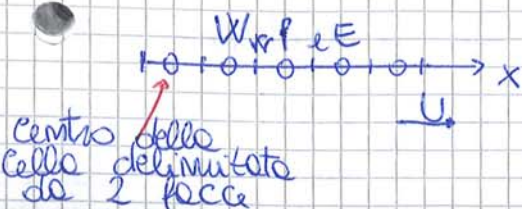 W w P e E
x
U
centro della
cella delimitata
da 2 facce